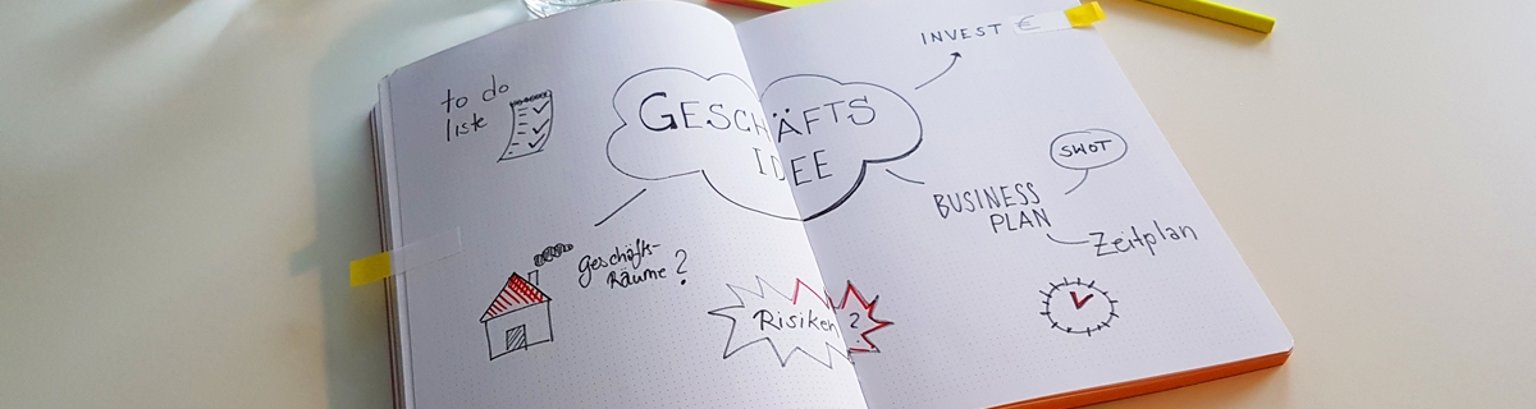 to do
liste
GESCHÄFTS
IDEE
INVEST €
SWOT
BUSINESS
PLAN
Zeitplan
Geschäfts-
Räume?
Risiken ?